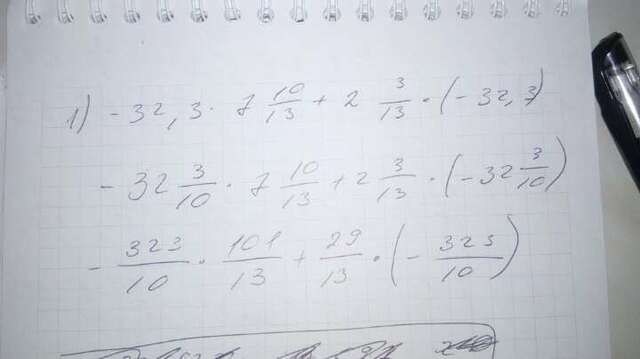 1) -32,3 · 7 10/13 + 2 3/13 · (-32,3)
-32 3/10 · 7 10/13 + 2 3/13 · (-32 3/10)
- 323/10 · 101/13 + 29/13 · (- 323/10)